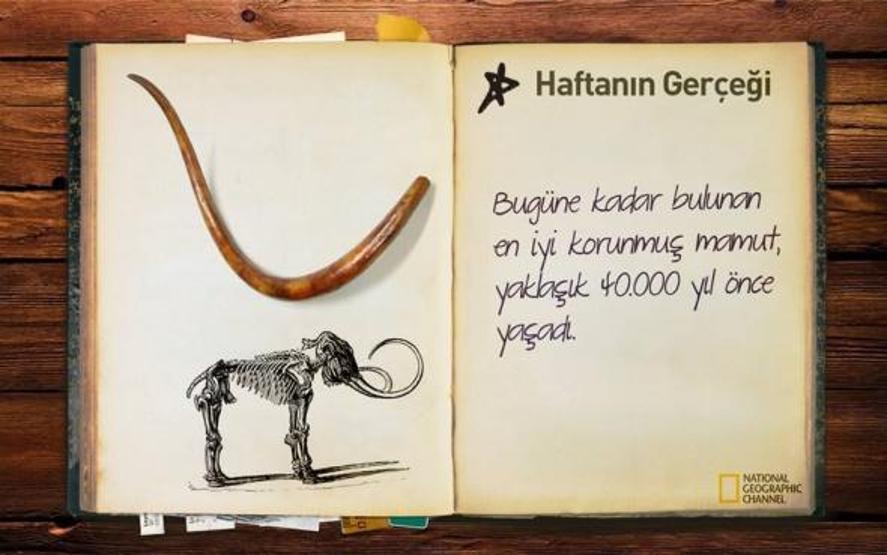 Haftanın Gerçeği
Bugüne kadar bulunan
en iyi korunmuş mamut,
yaklaşık 40.000 yıl önce
yaşadı.
NATIONAL
GEOGRAPHIC
CHANNEL